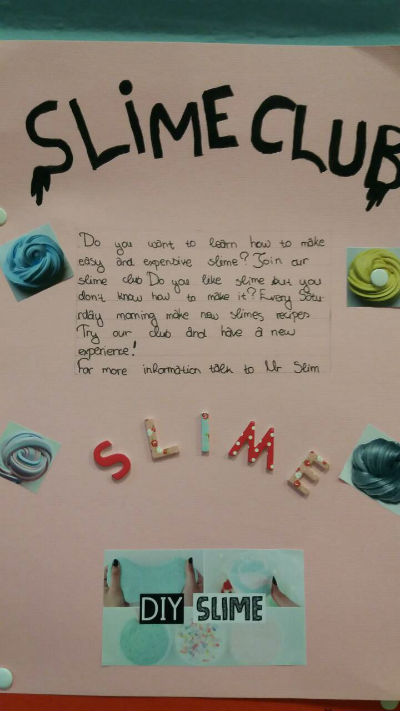 SLiME CLUB
Do you want to learn how to make
easy and expensive slime? Join our
slime club Do you like slime but you
don't know how to make it? Every Satu-
rday morning make new slimes recipes
Try our club and have a new
experience!
For more information talk to Mr Slim
SLiME
DIY SLIME